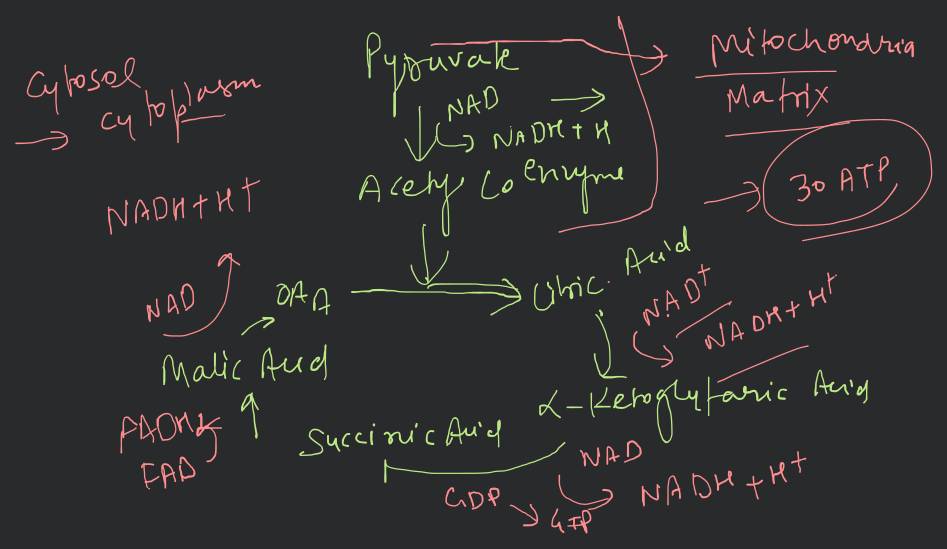 Pyruvate
Mitochondria
Matrix
Cytosol
Cytoplasm
NAD
NADH+H
Acety Co enzyme
30 ATP
NADH+H+
OAA
Citric Acid
NAD
NAD+
NADH+H+
Malic Acid
α-Ketoglutaric Acid
Succinic Acid
FADH2
FAD
NAD
NADH+H+
GDP
GTP